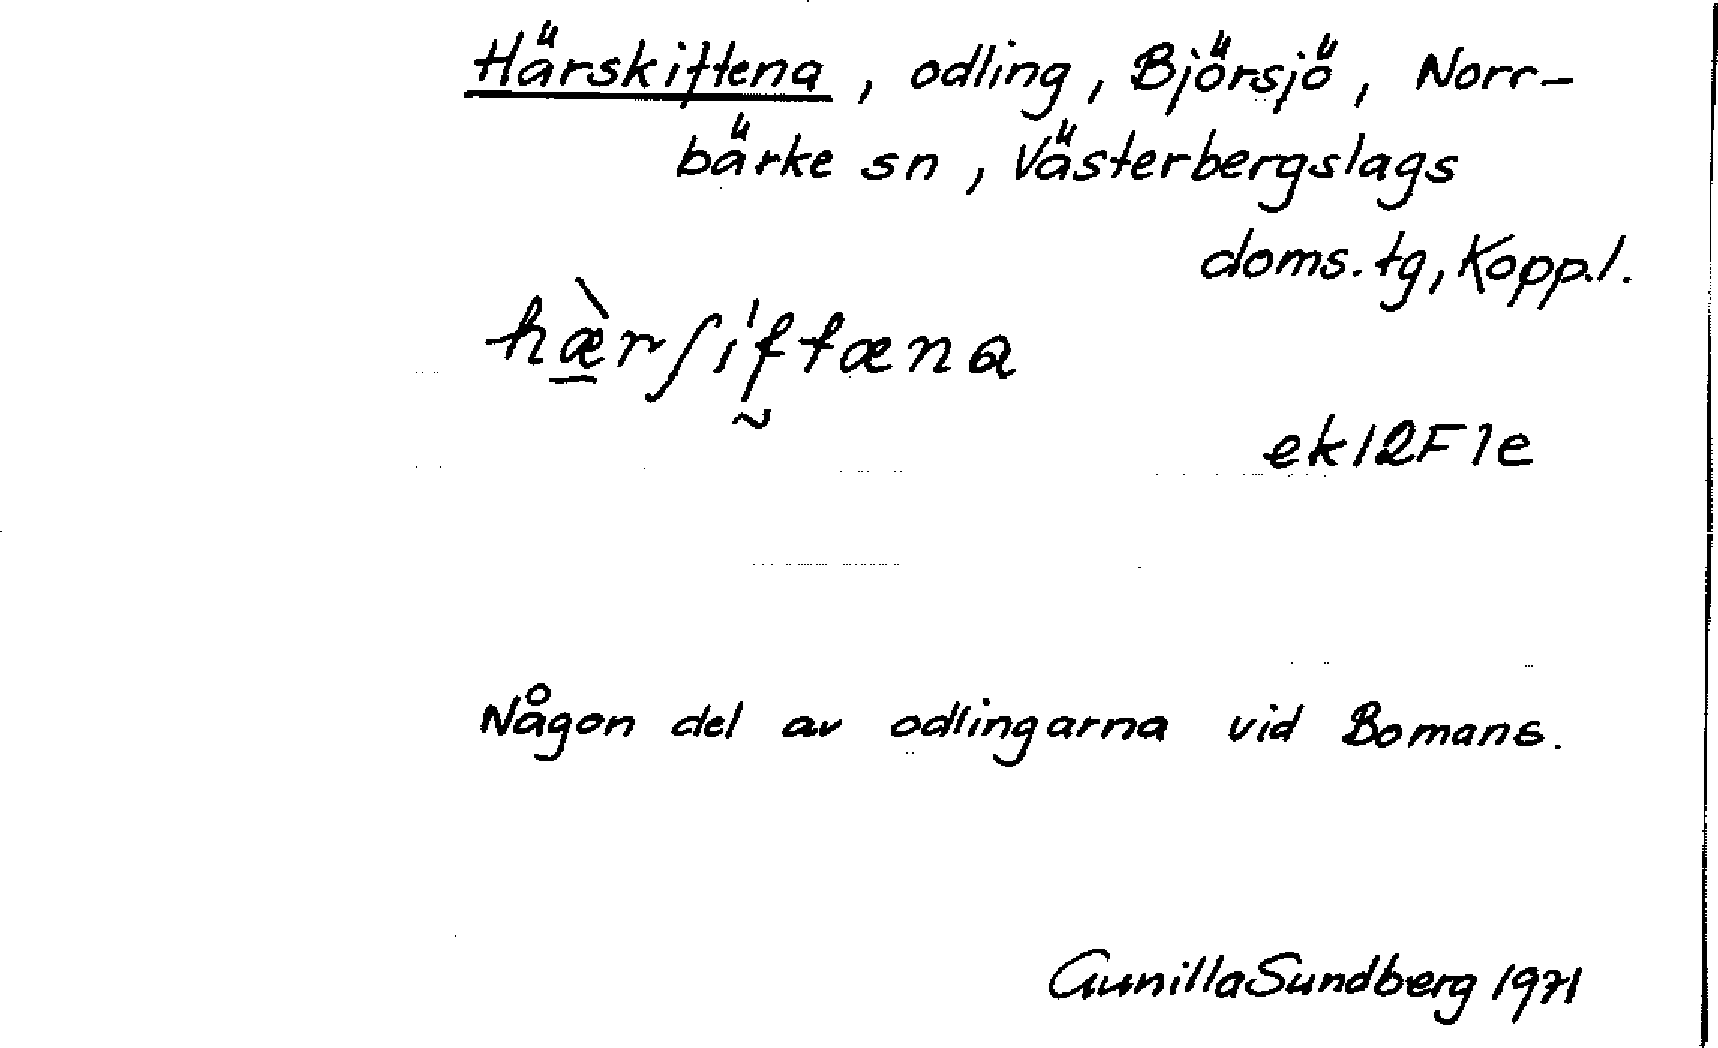 Härskiftena, odling, Björsjö, Norr-
bärke sn, Västerbergslags
doms.tg, Kopp.l.
hæ̠̀rʃi̍f̰tæna
ek12F1e
Någon del av odlingarna vid Bomans.
Gunilla Sundberg 1971